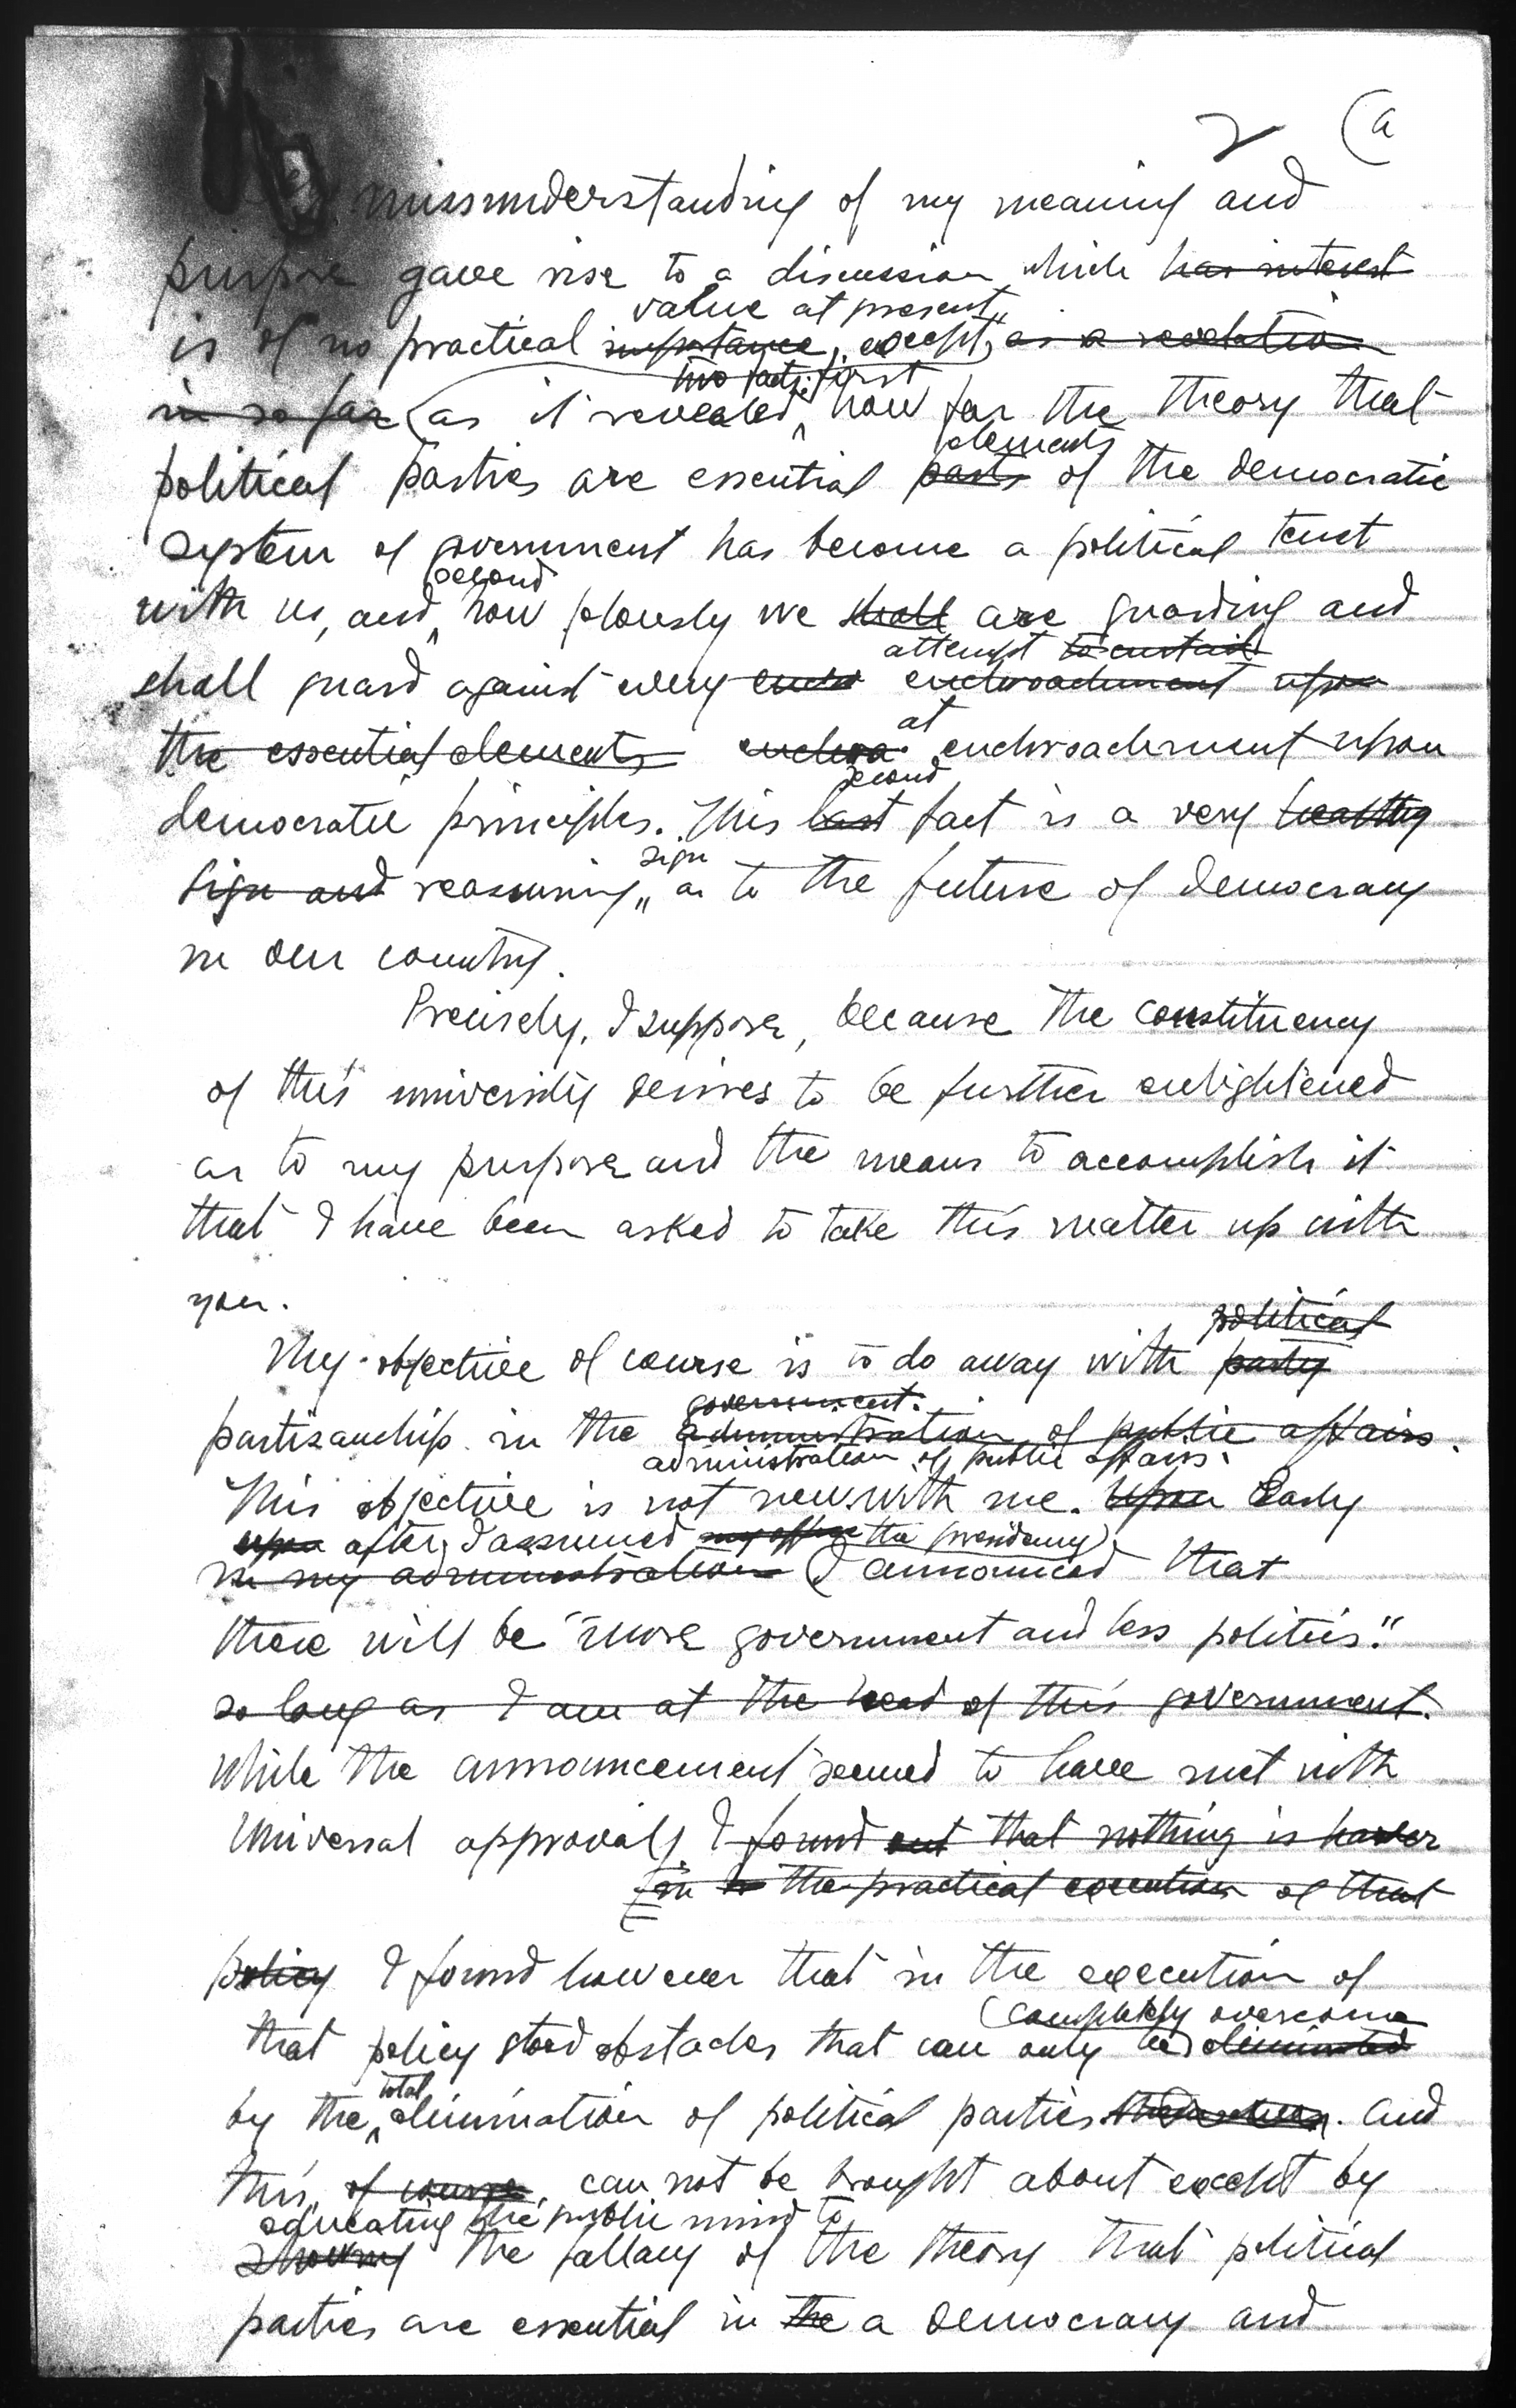 2 (a
misunderstanding of my meaning and
purpose gave rise to a discussion which has interest
value at present,
is of no practical importance, except, as a revelation
two facts: first
in so far (as it revealed how far the theory that
elements
political parties are essential parts of the democratic
system of government has become a political tenet
second
with us, and how jelously we shall are guarding and
attempt to curtail
shall guard against every encro enchroachment upon
at
the essential elements enchroa enchroachment upon
second
democratic principles. This last fact is a very healthy
sign
sign and reassuring as to the future of democracy
in our country.
Precisely, I suppose, because the constituency
of this university desires to be further enlightened
as to my purpose and the means to accomplish it
that I have been asked to take this matter up with
you.
political
My objective of course is to do away with party
government.
partisanship in the administration of public affairs.
administration of public affairs.
This objective is not new with me. Upon Early
upon after I assumed my office the presidency)
in my administration (I announced that
there will be "more government and less politics."
so long as I am at the head of this government.
While the announcement seemed to have met with
universal approval, I found out that nothing is harder
in to the practical execution of that
policy I found however that in the execution of
(completely overcome
that policy stood obstacles that can only be) eliminated
total
by the elimination of political parties themselves. And
this, of course, can not be brought about except by
educating the public mind to
showing the fallacy of the theory that political
parties are essential in the a democracy and